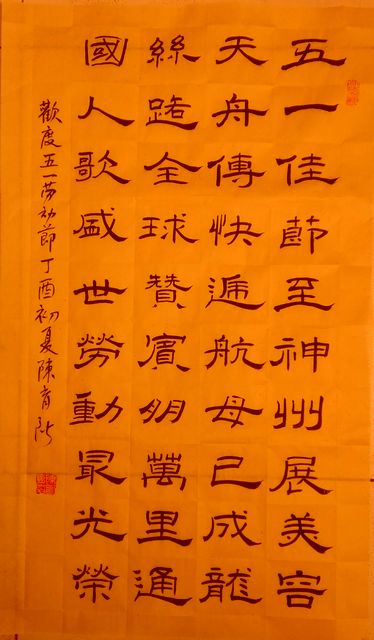 五一佳節至神州展美容
天舟傳快遞航母已成龍
絲路全球贊賓朋萬里通
國人歌盛世勞動最光榮
歡度五一劳动節丁酉初夏陳育